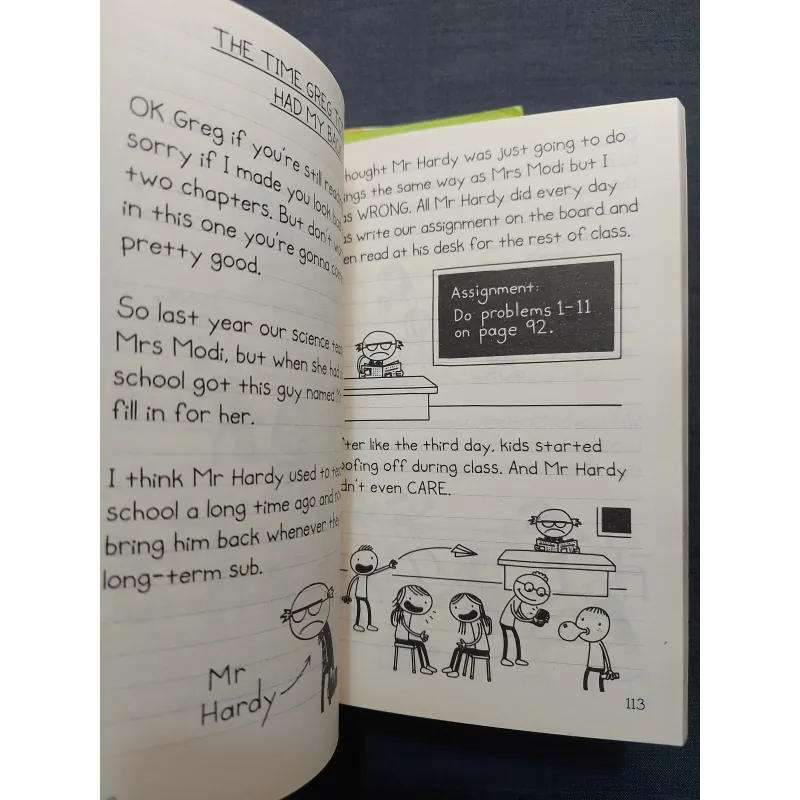 THE TIME GREG
HAD MY BACK
OK Greg if you're still
sorry if I made you look
two chapters. But don't
in this one you're gonna
pretty good.
So last year our science
Mrs Modi, but when she had
school got this guy named
fill in for her.
I think Mr Hardy used to
school a long time ago and
bring him back whenever
long-term sub.
Mr
Hardy
Mr Hardy was just going to do
the same way as Mrs Modi but I
WRONG. All Mr Hardy did every day
write our assignment on the board and
read at his desk for the rest of class.
Assignment:
Do problems 1-11
on page 92.
like the third day, kids started
off during class. And Mr Hardy
even CARE.
113